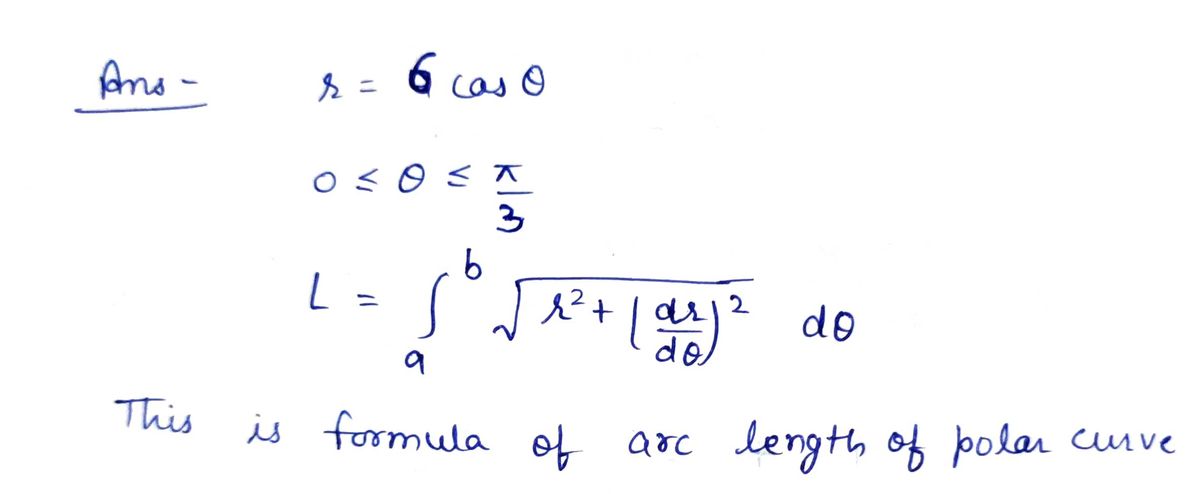 Ans - r = 6 cos θ
0 ≤ θ ≤ π/3
L = ∫_a^b √(r² + (dr/dθ)²) dθ
This is formula of arc length of polar curve